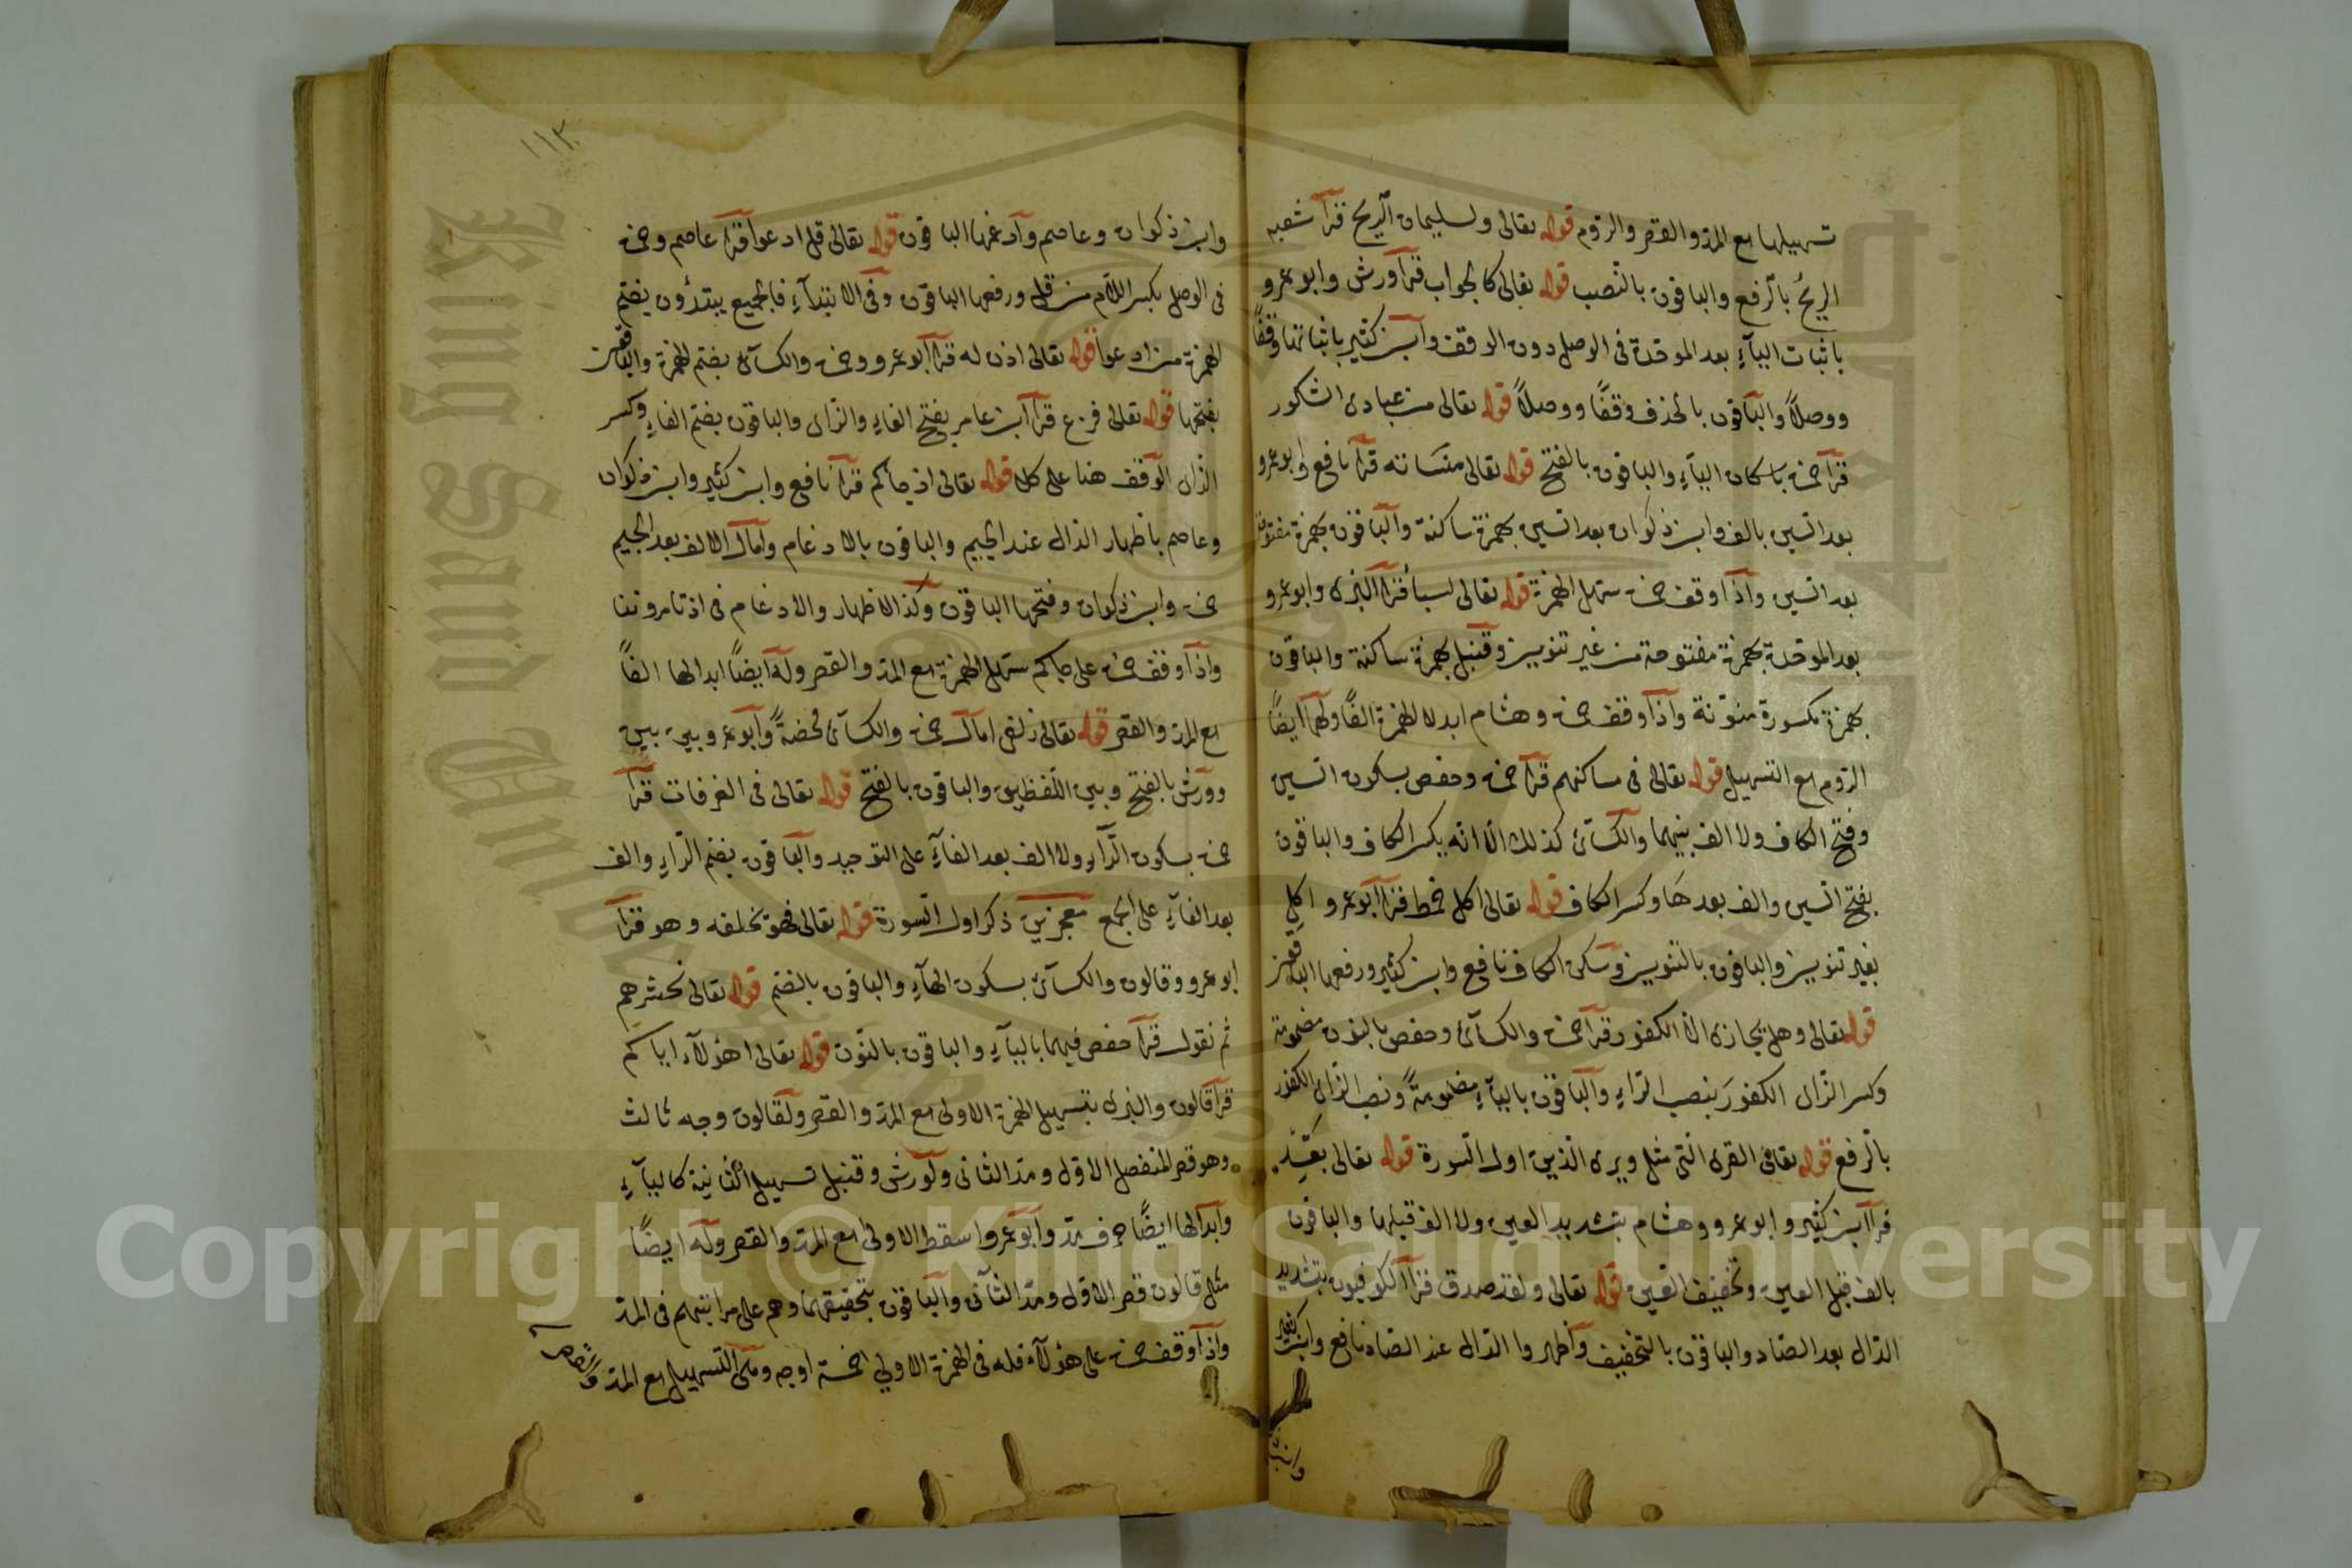 تسهيلها مع المد والقصر والروم قوله تعالى ولسليمان الريح قرأ شعبه
الريحُ بالرفع والباقون بالنصب قوله تعالى كالجواب قرأ ورش وابو عمرو
باثبات الياء بعد الموحدة فى الوصل دون الوقف وابن كثير باثباتها وقفًا
ووصلًا والباقون بالحذف وقفًا ووصلًا قوله تعالى من عبادى الشكور
قرأ حمزة باسكان الياء والباقون بالفتح قوله تعالى منساته قرأ نافع وابو عمرو
بعد السين بالف وابن ذكوان بعد السين بهمزة ساكنة والباقون بهمزة مفتوحة
بعد السين واذا وقف حمزة سهل الهمزة قوله تعالى لسبأ قرأ البزى وابو عمرو
بعد الموحدة بهمزة مفتوحة من غير تنوين وقنبل بهمزة ساكنة والباقون
بهمزة مكسورة منونة واذا وقف حمزة وهشام ابدلا الهمزة الفًا ولهما ايضًا
الروم مع التسهيل قوله تعالى فى مساكنهم قرأ حمزة وحفص بسكون السين
وفتح الكاف ولا الف بينهما والكسائى كذلك الا انه يكسر الكاف والباقون
بفتح السين والف بعدها وكسر الكاف قوله تعالى اكل خمط قرأ ابو عمرو اكلِ
بغير تنوين والباقون بالتنوين وسكن الكاف نافع وابن كثير ورفعها الباقون
قوله تعالى وهل يجازى الا الكفور قرأ حمزة والكسائى وحفص بالنون مضمومة
وكسر الزاى الكفورَ بنصب الراء والباقون بالياء مضمومةً ونصب الزاى الكفور
بالرفع قوله تعالى القرى التى مثل ويرى الذين اول السورة قوله تعالى بعّد
قرأ ابن كثير وابو عمرو وهشام بتشديد العين ولا الف قبلها والباقون
بالف قبل العين وتخفيف العين قوله تعالى ولقد صدق قرأ الكوفيون بتشديد
الدال بعد الصاد والباقون بالتخفيف واظهروا الدال عند الصاد نافع وابن كثير
وابن ذكوان وعاصم وادغمها الباقون قوله تعالى قل ادعوا قرأ عاصم وحمزة
فى الوصل بكسر اللام من قل ورفعها الباقون وفى الابتداء فالجميع يبتدؤن بضم
الهمزة من ادعوا قوله تعالى اذن له قرأ ابو عمرو وحمزة والكسائى بضم الهمزة والباقون
بفتحها قوله تعالى فزع قرأ ابن عامر بفتح الفاء والزاى والباقون بضم الفاء وكسر
الزاى الوقف هنا على كلا قوله تعالى اذ جاءكم قرأ نافع وابن كثير وابن ذكوان
وعاصم باظهار الذال عند الجيم والباقون بالادغام وامال الالف بعد الجيم
حمزة وابن ذكوان وفتحها الباقون وكذا الاظهار والادغام فى اذ تامروننا
واذا وقف حمزة على جاءكم سهل الهمزة مع المد والقصر وله ايضًا ابدالها الفًا
مع المد والقصر قوله تعالى زلفى امال حمزة والكسائى محضةً وابو عمرو بين بين
وورش بالفتح وبين اللفظين والباقون بالفتح قوله تعالى فى الغرفات قرأ
حمزة بسكون الراء ولا الف بعد الفاء على التوحيد والباقون بضم الراء والف
بعد الفاء على الجمع معجزين ذكر اول السورة قوله تعالى فهو يخلفه وهو قرأ
ابو عمرو وقالون والكسائى بسكون الهاء والباقون بالضم قوله تعالى نحشرهم
ثم نقول قرأ حفص فيهما بالياء والباقون بالنون قوله تعالى اهؤلاء اياكم
قرأ قالون والبزى بتسهيل الهمزة الاولى مع المد والقصر ولقالون وجه ثالث
وهو قصر المنفصل الاول ومد الثانى ولورش وقنبل تسهيل الثانية كالياء
وابدالها ايضًا حرف مد وابو عمرو اسقط الاولى مع المد والقصر وله ايضًا
مثل قالون قصر الاول ومد الثانى والباقون بتحقيقهما وهم على مراتبهم فى المد
واذا وقف حمزة على هؤلاء فله فى الهمزة الاولى خمسة اوجه وهى التسهيل مع المد والقصر
١١٣
King Saud University
Copyright © King Saud University